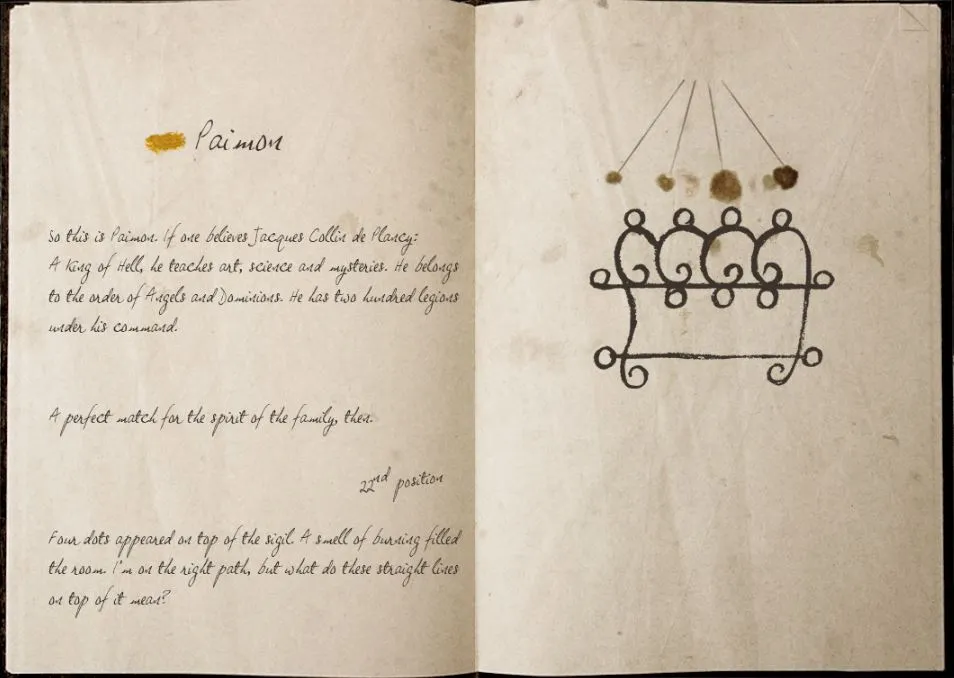 Paimon
So this is Paimon. If one believes Jacques Collin de Plancy:
A King of Hell, he teaches art, science and mysteries. He belongs
to the order of Angels and Dominions. He has two hundred legions
under his command.
A perfect match for the spirit of the family, then.
22nd position
Four dots appeared on top of the sigil. A smell of burning filled
the room. I'm on the right path, but what do these straight lines
on top of it mean?